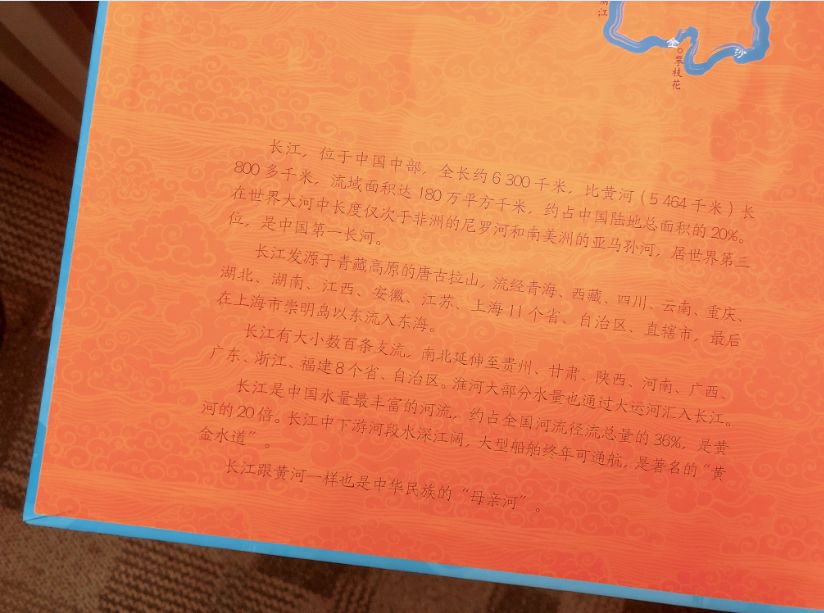 金
沙
攀枝花
长江，位于中国中部，全长约6 300千米，比黄河（5 464千米）长
800多千米，流域面积达180万平方千米，约占中国陆地总面积的20%。
在世界大河中长度仅次于非洲的尼罗河和南美洲的亚马孙河，居世界第三
位，是中国第一长河。
长江发源于青藏高原的唐古拉山，流经青海、西藏、四川、云南、重庆、
湖北、湖南、江西、安徽、江苏、上海11个省、自治区、直辖市，最后
在上海市崇明岛以东流入东海。
长江有大小数百条支流，南北延伸至贵州、甘肃、陕西、河南、广西、
广东、浙江、福建8个省、自治区。淮河大部分水量也通过大运河汇入长江。
长江是中国水量最丰富的河流，约占全国河流径流总量的36%，是黄
河的20倍。长江中下游河段水深江阔，大型船舶终年可通航，是著名的“黄
金水道”。
长江跟黄河一样也是中华民族的“母亲河”。